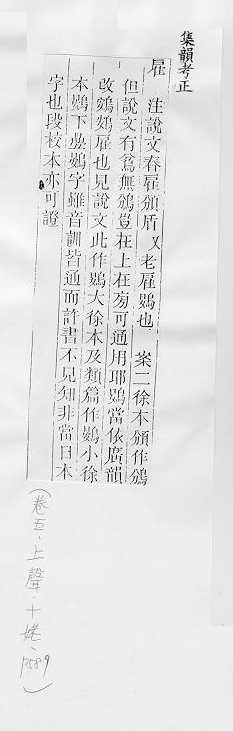 集韻考正
雇 注說文春雇頒盾又老雇鷃也 案二徐本頒作鳻
但說文有無鳻豈在上在旁可通用耶鷃當依廣韻
改鴳鴳雇也見說文此作鷃大徐本及類篇作鷃小徐
本鴳下鷃字雖音訓皆通而許書不見知非當日本
字也段校本亦可證
（卷五、上聲．十姥、P589）